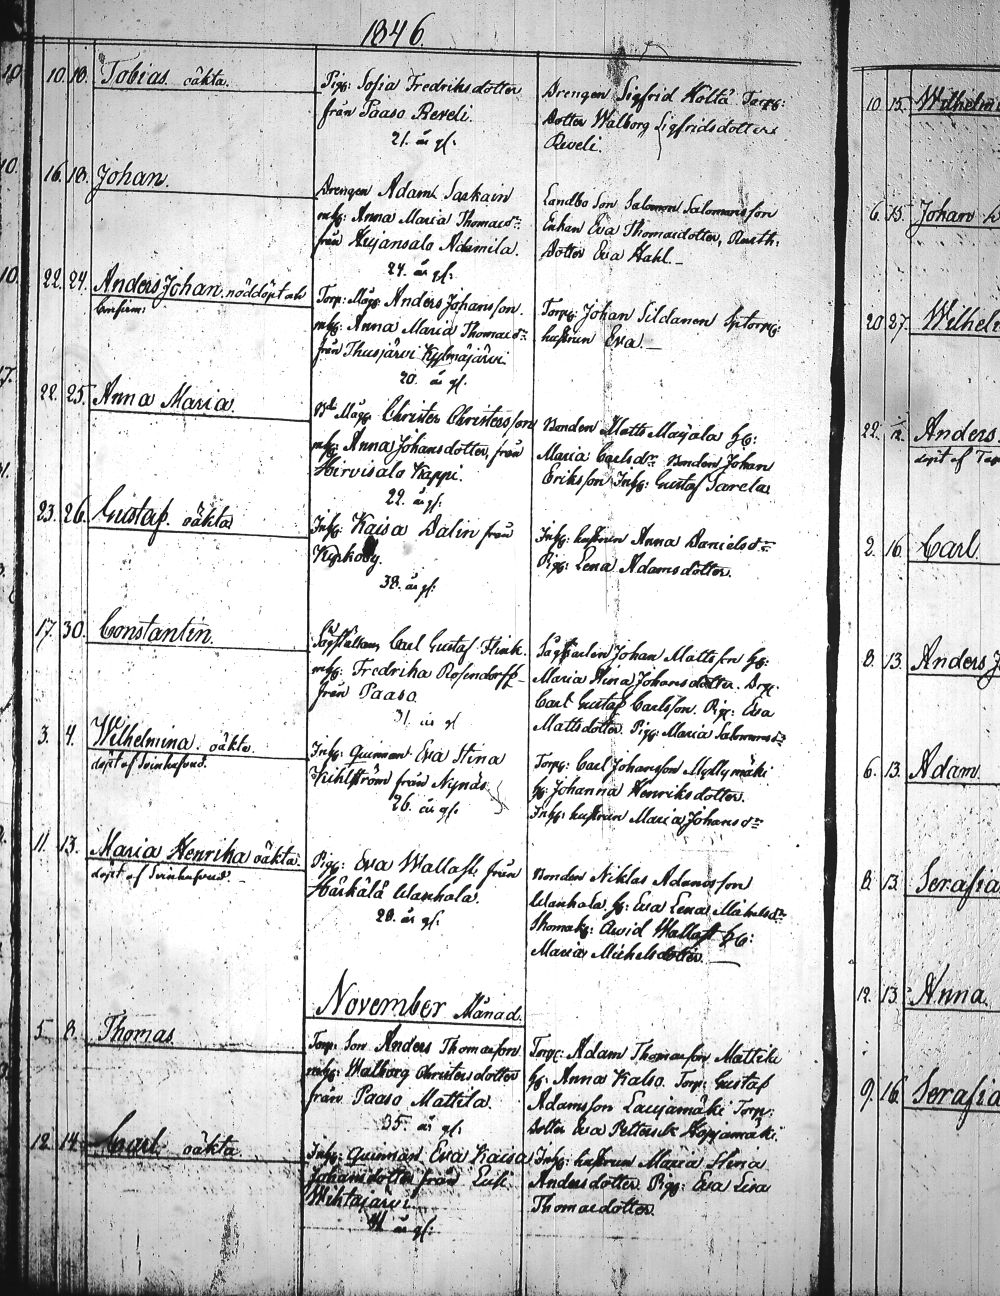 1846.
10. 18. Tobias. oäkta.
Pig: Sofia Fredriksdotter
från Paaso Reveli.
21. år gl:
Drengen Sigfrid Holta Torp:
Dotter Walborg Sigfridsdotter
Reveli.
16. 18. Johan.
Drengen Adam Saskain
mhg: Anna Maria Thomasdr
från Hujansalo Adamila.
24. år gl:
Landbo Son Salomon Salomonsson
Enkan Eva Thomasdotter,
Dotter Eva Hahl.
22. 24. Anders Johan. nöddöpt ab
Confirm:
Torp: Måg: Anders Johansson.
mhg: Anna Maria Thomasdr
från Thusjärvi Kylmäjärvi
20. år gl:
Torp: Johan Sildanen
hustrun Eva.
22. 25. Anna Maria.
Måg: Christer Christersson
mhg: Anna Johansdotter, från
Hirvisalo Kappi.
22. år gl:
Bonden Matts Mayala hu:
Maria Carlsdr Bonden Johan
Eriksson Inhg: Gustaf Sarela
23. 26. Gustaf. oäkta
Inhg: Kaisa Dalin från
Kyrkoby.
38. år gl:
Inhg: hustrun Anna Danielsdr
Pig: Lena Adamsdotter.
17. 30. Constantin.
Carl Gustaf Flink.
mhg: Fredrika Rosendorff
från Paaso
31. år gl
Johan Mattsson hu:
Maria Stina Johansdotter. Drg:
Carl Gustaf Carlsson. Pig: Eva
Mattsdotter. Pig: Maria Salomonsdr
3. 4. Wilhelmina. oäkta.
döpt af Svinhufvud.
Inhg: Quinnan Eva Stina
Kihlström från Nynäs.
26. år gl:
Torp: Carl Johansson Myllymäki
hu: Johanna Henriksdotter.
Inhg: hustrun Maria Johansdr
11. 13. Maria Henrika oäkta.
döpt af Svinhufvud.
Pig: Eva Wallast från
Härkälä Wanhala.
20. år gl:
Bonden Niklas Adamsson
Wanhala hu: Eva Lena Mikelsdr
Arvid Wallast hu:
Maria Michelsdotter.
November Månad.
5. 8. Thomas.
Torp: Son Anders Thomasson
mhg: Walborg Christersdotter
från Paaso Mattila.
35. år gl:
Torp: Adam Thomasson Mattila
hu: Anna Kalso. Torp: Gustaf
Adamsson Laujamäki Torp:
Dotter Eva Hopjamäki.
12. 14. Carl. oäkta
Inhg: Quinnan Eva Kaisa
Johansdotter från
Wihtajärvi
år gl:
Inhg: hustrun Maria Stina
Andersdotter. Pig: Eva Lisa
Thomasdotter.
10. 15. Wilhelmi
6. 15. Johan
20 27. Wilhel
22. Anders
döpt af
2. 16 Carl.
8. 13. Anders J
6. 13. Adam.
8. 13. Serafia
12. 13. Anna.
9. 16. Serafia